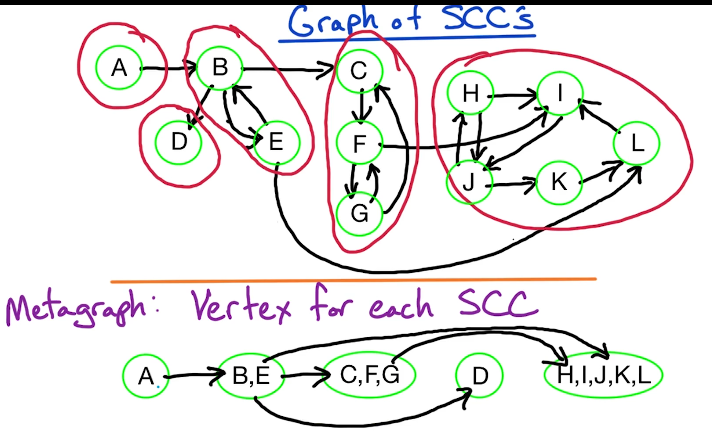 Graph of SCC's
A B C H I
D E F J K L
G
Metagraph: Vertex for each SCC
A B,E C,F,G D H,I,J,K,L